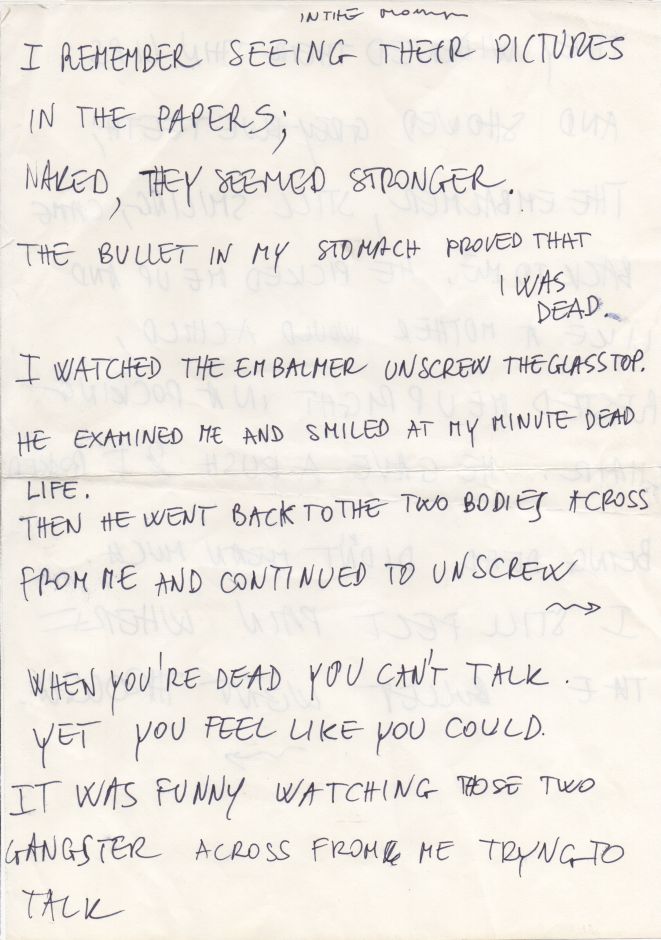 IN THE morgue
I REMEMBER SEEING THEIR PICTURES
IN THE PAPERS;
NAKED, THEY SEEMED STRONGER.
THE BULLET IN MY STOMACH PROVED THAT
I WAS
DEAD.
I WATCHED THE EMBALMER UNSCREW THE GLASS TOP.
HE EXAMINED ME AND SMILED AT MY MINUTE DEAD
LIFE.
THEN HE WENT BACK TO THE TWO BODIES ACROSS
FROM ME AND CONTINUED TO UNSCREW
WHEN YOU'RE DEAD YOU CAN'T TALK.
YET YOU FEEL LIKE YOU COULD.
IT WAS FUNNY WATCHING THOSE TWO
GANGSTER ACROSS FROM ME TRYNG TO
TALK